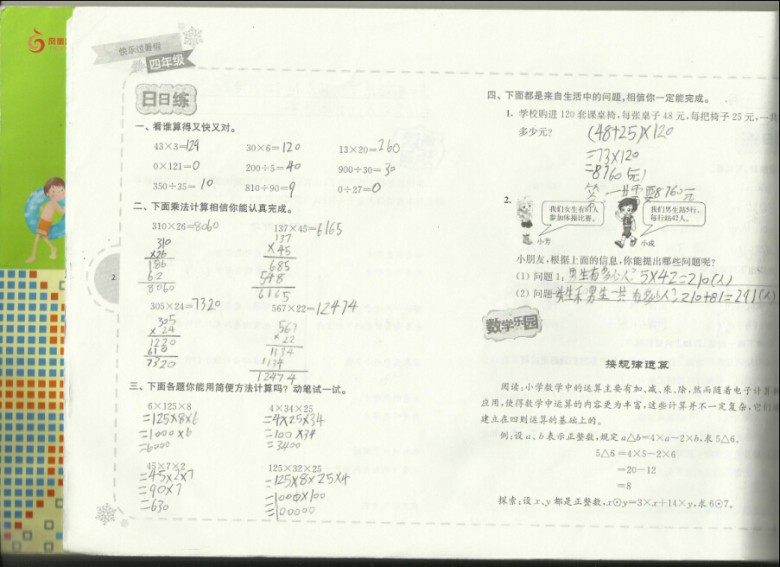 快乐过暑假
四年级
日日练
一、看谁算得又快又对。
43×3=129 30×6=120 13×20=260
0×121=0 200÷5=40 900÷30=30
350÷35=10 810÷90=9 0÷27=0
二、下面乘法计算相信你能认真完成。
310×26=8060 137×45=6165
310
×26
186
62
8060
137
×45
685
548
6165
305×24=7320 567×22=12474
305
×24
1220
610
7320
567
×22
1134
1134
12474
三、下面各题你能用简便方法计算吗?动笔试一试。
6×125×8 4×34×25
=125×8×6 =4×25×34
=1000×6 =100×34
=6000 =3400
45×7×2 125×32×25
=45×2×7 =125×8×25×4
=90×7 =1000×100
=630 =100000
2
四、下面都是来自生活中的问题,相信你一定能完成。
1. 学校购进 120 套课桌椅,每张桌子 48 元,每把椅子 25 元,一共
多少元?
(48+25)×120
=73×120
=8760(元)
答 一共需要8760元
2.
我们女生有81人
参加体操比赛。
我们男生站5行,
每行站42人。
小芳 小成
小朋友,根据上面的信息,你能提出哪些问题呢?
(1) 问题1:男生有多少人? 5×42=210(人)
(2) 问题 女生和男生一共有多少人? 210+81=291(人)
数学乐园
按规律运算
阅读:小学数学中的运算主要有加、减、乘、除,然而随着电子计算机
应用,使得数学中运算的内容更为丰富,这些计算并不一定复杂,它们
建立在四则运算的基础上的。
例:设 a、b 表示正整数,规定 a△b=4×a-2×b,求 5△6。
5△6=4×5-2×6
=20-12
=8
探索:设 x、y 都是正整数,x⊙y=3×x+14×y,求 6⊙7。